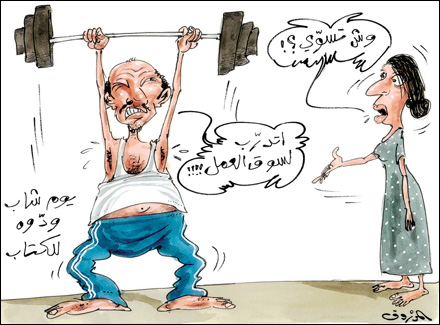 وش تسوّي ؟؟!
اتدرّب
لسوق العمل !!!!
يوم شاب
ودّوه
للكتاب
المرزوق